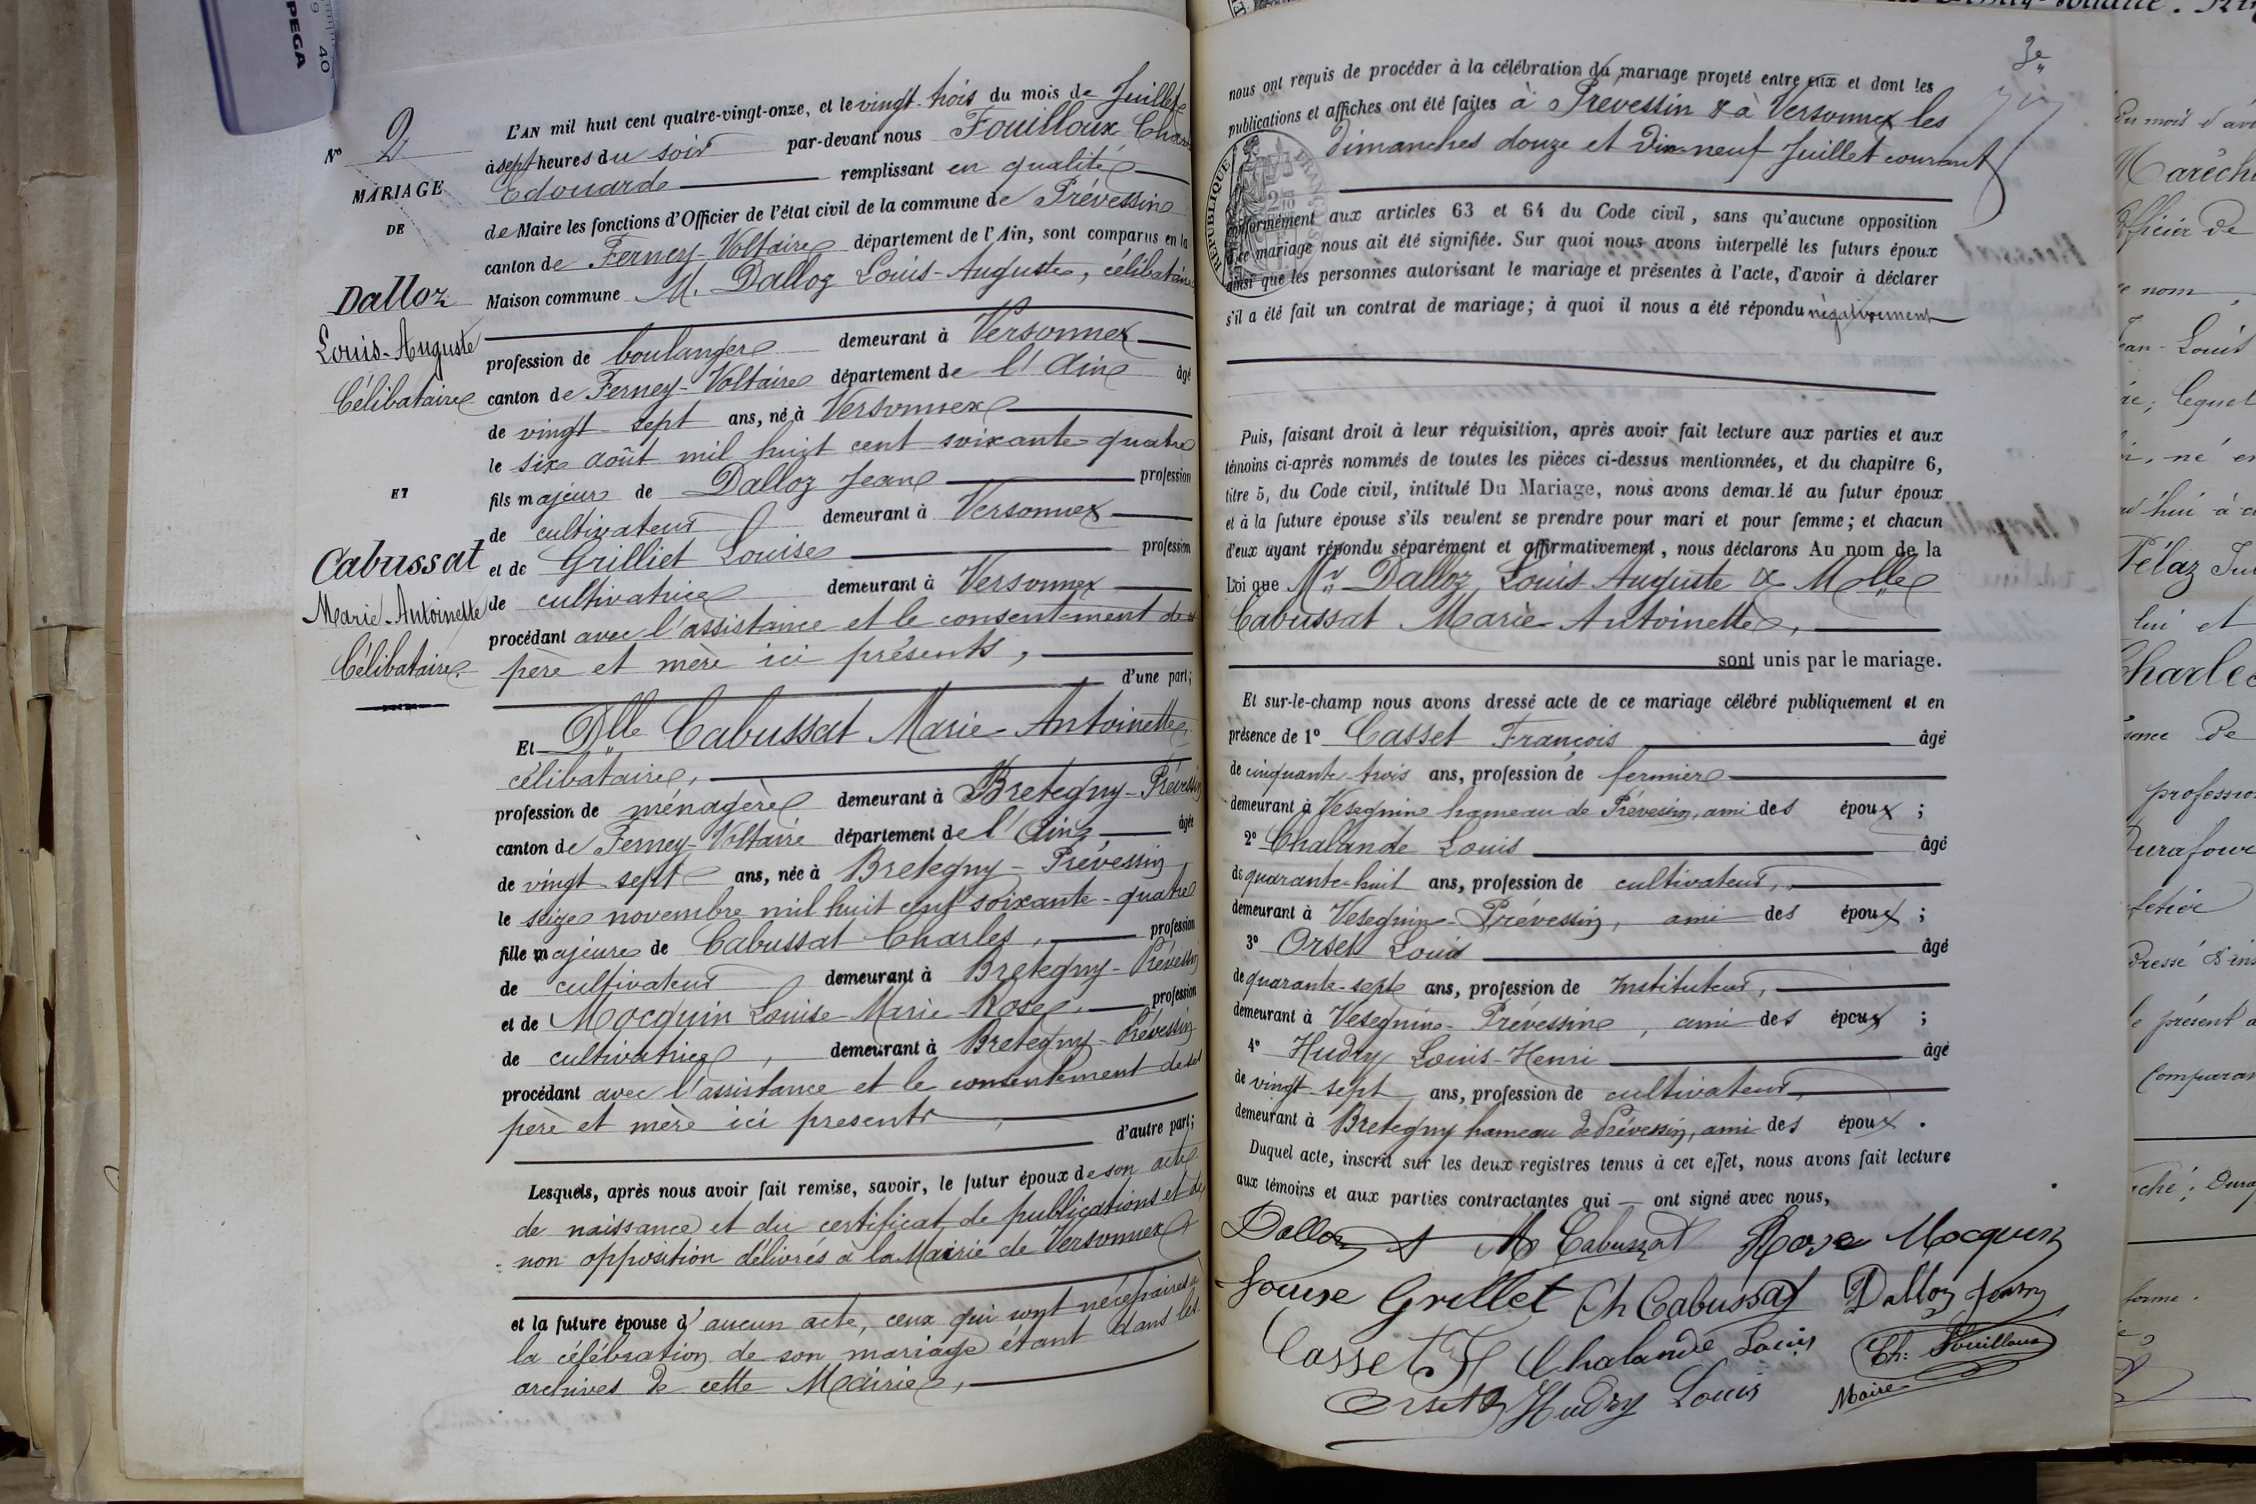 PEGA
40
L'AN mil huit cent quatre-vingt-onze, et le vingt-trois du mois de Juillet
à sept heures du soir par-devant nous Fouilloux Charles
Edouard remplissant en qualité
de Maire les fonctions d'Officier de l'état civil de la commune de Prévessin
canton de Ferney-Voltaire département de l'Ain, sont comparus en la
Maison commune M. Dalloz Louis-Auguste, célibataire
profession de boulanger demeurant à Versonnex
canton de Ferney-Voltaire département de l'Ain âgé
de vingt-sept ans, né à Versonnex
le six août mil huit cent soixante quatre
fils majeur de Dalloz Jean profession
de cultivateur demeurant à Versonnex
et de Grilliet Louise profession
de cultivatrice demeurant à Versonnex
procédant avec l'assistance et le consentement de
père et mère ici présents,
d'une part;
Et Dlle Cabussat Marie-Antoinette
célibataire,
profession de ménagère demeurant à Bretegny-Prévessin
canton de Ferney-Voltaire département de l'Ain, âgée
de vingt sept ans, née à Bretegny-Prévessin
le seize novembre mil huit cent soixante-quatre
fille majeure de Cabussat Charles, profession
de cultivateur demeurant à Bretegny-Prévessin
et de Mocquin Louise-Marie-Rose, profession
de cultivatrice, demeurant à Bretegny-Prévessin
procédant avec l'assistance et le consentement de ses
père et mère ici présents,
d'autre part;
Lesquels, après nous avoir fait remise, savoir, le futur époux de son acte
de naissance et du certificat de publications et de
non opposition délivrés à la Mairie de Versonnex
et la future épouse d'aucun acte, ceux qui sont nécessaires à
la célébration de son mariage étant dans les
archives de cette Mairie,
N° 2
MARIAGE
DE
Dalloz
Louis-Auguste
Célibataire
ET
Cabussat
Marie-Antoinette
Célibataire.
3e
nous ont requis de procéder à la célébration du mariage projeté entre eux et dont les
publications et affiches ont été faites à Prévessin & à Versonnex les
dimanches douze et Dix-neuf Juillet courant
RÉPUBLIQUE FRANÇAISE
conformément aux articles 63 et 64 du Code civil, sans qu'aucune opposition
à ce mariage nous ait été signifiée. Sur quoi nous avons interpellé les futurs époux
ainsi que les personnes autorisant le mariage et présentes à l'acte, d'avoir à déclarer
s'il a été fait un contrat de mariage; à quoi il nous a été répondu négativement
Puis, faisant droit à leur réquisition, après avoir fait lecture aux parties et aux
témoins ci-après nommés de toutes les pièces ci-dessus mentionnées, et du chapitre 6,
titre 5, du Code civil, intitulé Du Mariage, nous avons demandé au futur époux
et à la future épouse s'ils veulent se prendre pour mari et pour femme; et chacun
d'eux ayant répondu séparément et affirmativement, nous déclarons Au nom de la
Loi que Mr Dalloz Louis Auguste & Melle
Cabussat Marie Antoinette,
sont unis par le mariage.
Et sur-le-champ nous avons dressé acte de ce mariage célébré publiquement et en
présence de 1° Casset François âgé
de cinquante-trois ans, profession de fermier
demeurant à Vesegnin hameau de Prévessin, ami des époux ;
2° Chalande Louis âgé
de quarante-huit ans, profession de cultivateur,
demeurant à Vesegnin-Prévessin, ami des époux ;
3° Orset Louis âgé
de quarante-sept ans, profession de Instituteur,
demeurant à Vesegnin-Prévessin, ami des époux ;
4° Hudry Louis-Henri âgé
de vingt-sept ans, profession de cultivateur,
demeurant à Bretegny hameau de Prévessin, ami des époux .
Duquel acte, inscrit sur les deux registres tenus à cet effet, nous avons fait lecture
aux témoins et aux parties contractantes qui — ont signé avec nous,
Dalloz A M Cabussat Rose Mocquin
Louise Grillet Ch Cabussat Dalloz Jean
Casset F Chalande Louis Ch: Fouilloux
Orset L Hudry Louis Maire
du mois d'avril
Maréchal
Officier de
nom,
Jean-Louis
lequel
né en
Pélaz
lui et
Charles
profession
dressé
le présent